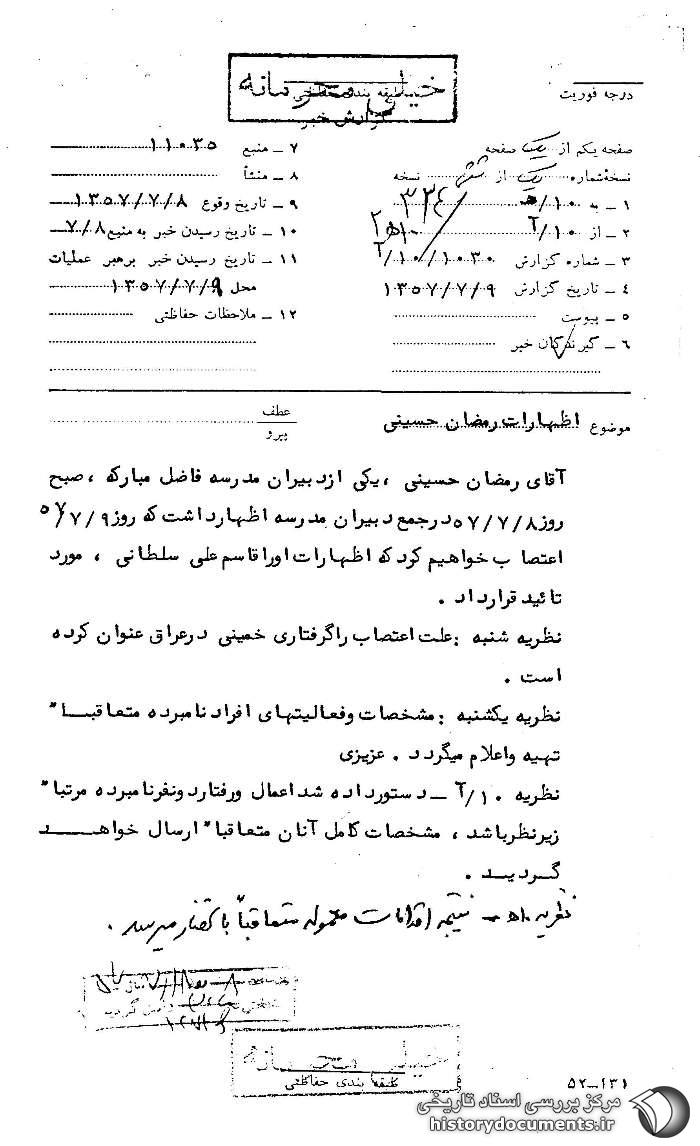 خیلی محرمانه
طبقه بندی حفاظتی
گزارش خبر
درجه فوریت
صفحه یکم از یک صفحه
نسخه شماره یک از شش نسخه
۱ – به ۱۰/ه
۲ – از ۱۰/آ
۳ – شماره گزارش ۱۰۳۰/۱۰/آ
۴ – تاریخ گزارش ۱۳۵۷/۷/۹
۵ – پیوست
۶ – گیرندگان خبر
۷ – منبع ۱۱۰۳۵
۸ – منشأ
۹ – تاریخ وقوع ۱۳۵۷/۷/۸
۱۰ – تاریخ رسیدن خبر به منبع ۷/۸
۱۱ – تاریخ رسیدن خبر برهبر عملیات
محل ۱۳۵۷/۷/۹
۱۲ – ملاحظات حفاظتی
موضوع اظهارات رمضان حسینی
عطف
پیرو
آقای رمضان حسینی ، یکی ازدبیران مدرسه فاضل مبارکه ، صبح
روز ۵۷/۷/۸ درجمع دبیران مدرسه اظهارداشت که روز ۵۷/۷/۹
اعتصاب خواهیم کرد که اظهارات اورا قاسم علی سلطانی ، مورد
تائید قرارداد .
نظریه شنبه : علت اعتصاب راگرفتاری خمینی درعراق عنوان کرده
است .
نظریه یکشنبه : مشخصات وفعالیتهای افراد نامبرده متعاقبـــا "
تهیه واعلام میگردد . عزیزی
نظریه ۱۰/آ – دستورداده شد اعمال ورفتاردونفرنامبرده مرتبا "
زیرنظرباشد ، مشخصات کامل آنان متعاقبا " ارسال خواهـــد
گـردیـد .
نظریه ۱۰ه – نتیجه اقدامات معموله متعاقباً باستحضار میرسد .
خیلی محرمانه
طبقه بندی حفاظتی
۵۲–۱۳۱
مرکز بررسی اسناد تاریخی
historydocuments.ir